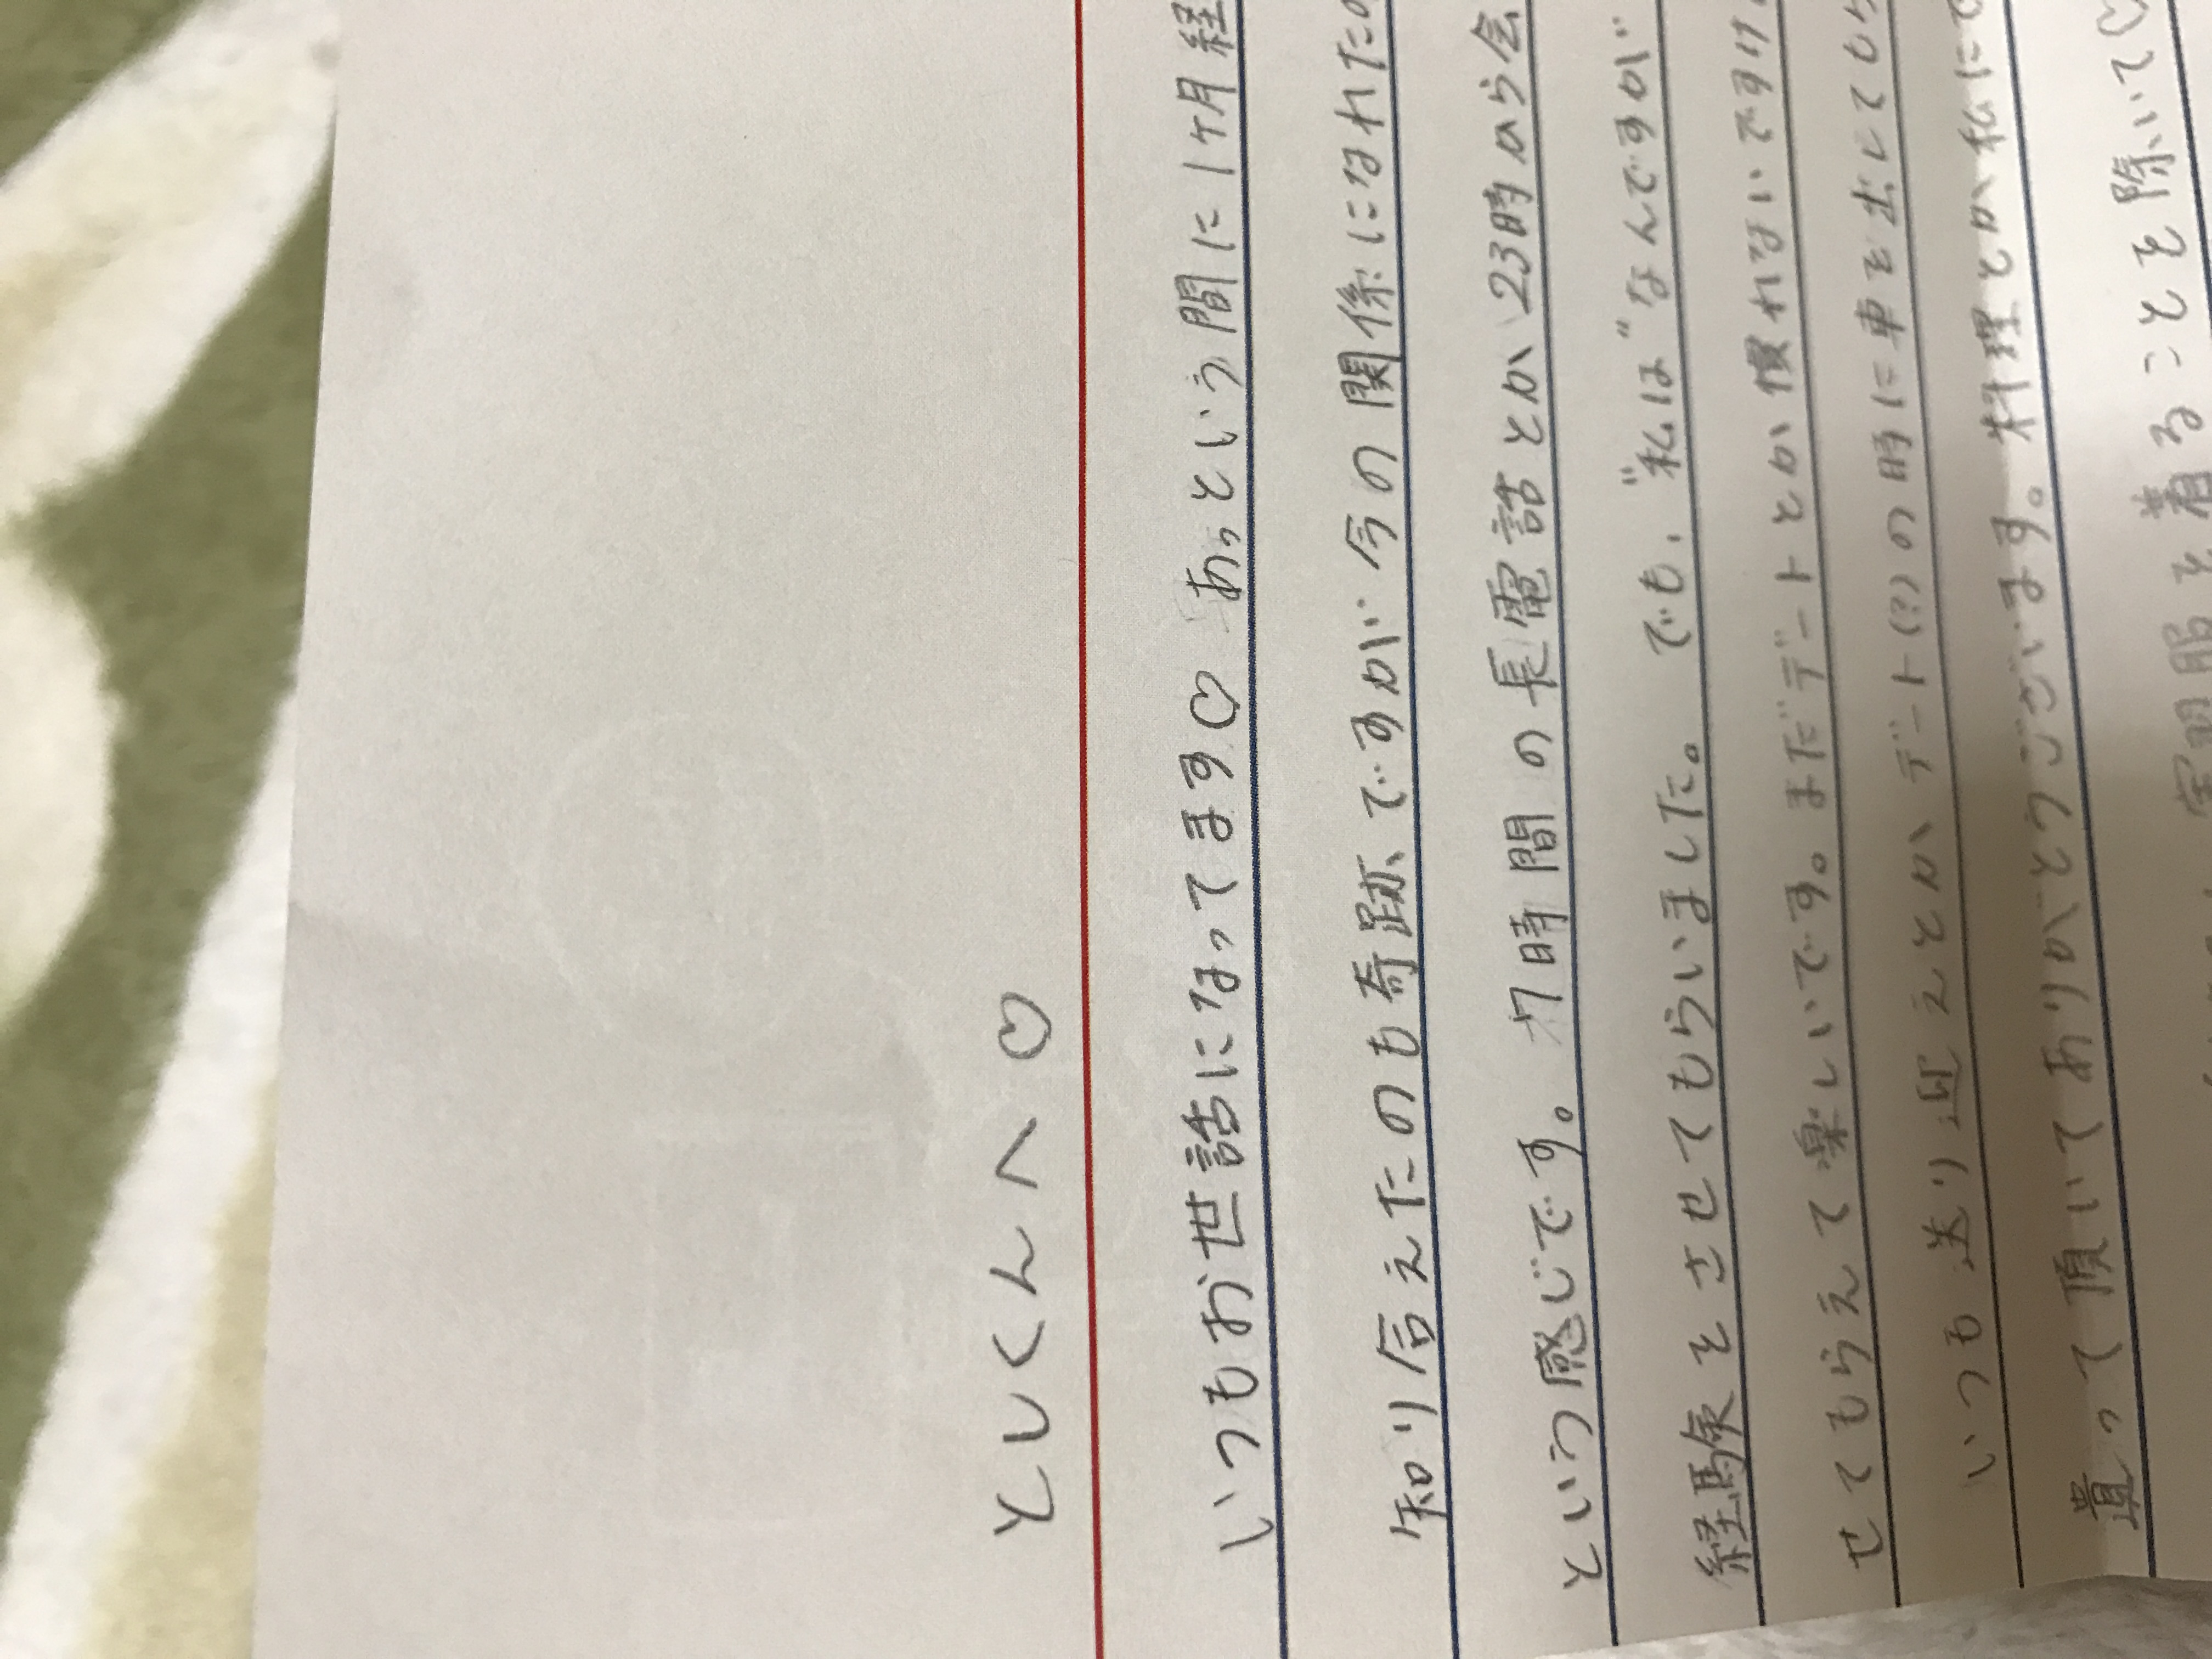 としくんへ♡
いつもお世話になってます♡ あっという間に1ヶ月経
知り合えたのも奇跡ですが今の関係になれたの
という感じです。7時間の長電話とか23時から会
経験をさせてもらいました。でも、"私は"なんですが
せてもらえて楽しいです。まだデートとか慣れないですけ
いつも送り迎えとかデート(?)の時に車を出してもら
遣って頂いてありがとうございます。料理とか私にで
実習服を着ることを除いて♡